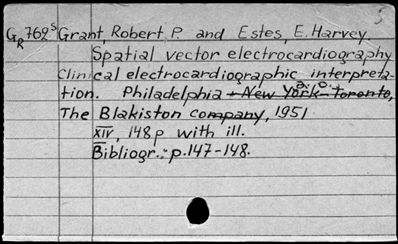 5
GR762S Grant, Robert P. and Estes, E. Harvey.
Spatial vector electrocardiography
Clinical electrocardiographic interpreta-
tion. Philadelphia + New York - Toronto,
The Blakiston company, 1951
XIV, 148p with ill.
Bibliogr.: p.147-148.